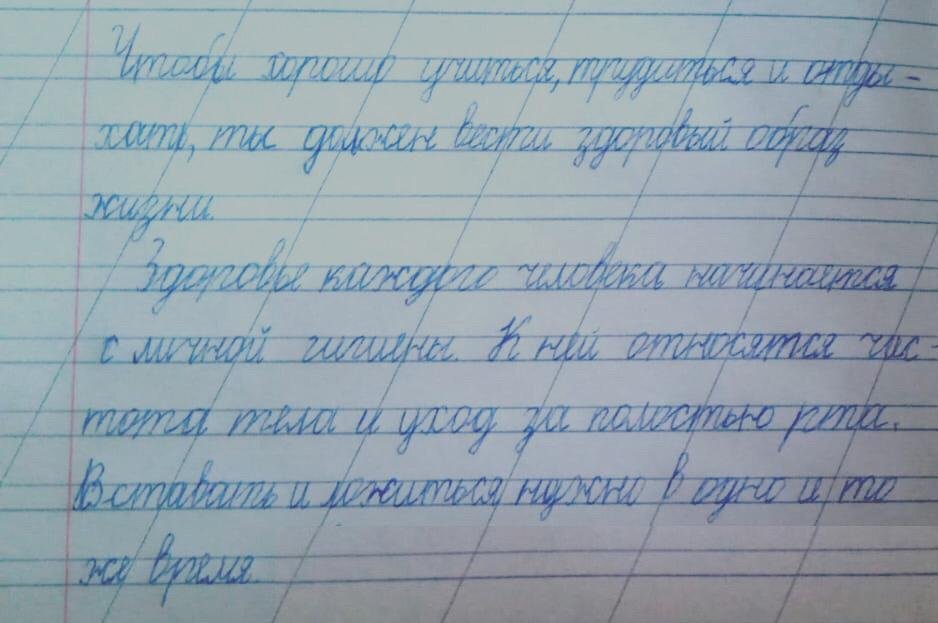 Чтобы хорошо учиться, трудиться и отды-
хать, ты должен вести здоровый образ
жизни.
Здоровье каждого человека начинается
с личной гигиены. К ней относятся чис-
тота тела и уход за полостью рта.
Вставать и ложиться нужно в одно и то
же время.